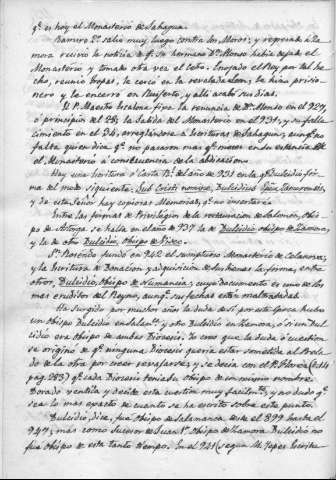 qe es hoy el Monasterio de Sahagun.
Ramiro 2º salió muy luego contra los Moros; y regresado á Za-
mora recivió la noticia de q. su hermano Dn Alonso habia dejado el
Monasterio y tomado otra vez el cetro. Enojado el Rey por tal he-
cho, reunió tropas, le cercó en la revelada Leon, le hizo prisio-
nero y le encerró en Ruiforco, y alli acabó sus dias.
El P. Maestro Escalona fija la renuncia de Dn Alonso en el 927,
ó principio del 28; la salida del Monasterio en el 931, y su falle-
cimiento en el 32, arreglandose á Escrituras de Sahagun; aunque no
falta quien diga qe no pasaron mas qe meses en su estancia en
el Monasterio á consecuencia de la abdicacion.
Hay una escritura ó Carta del año de 931 en la qe Dulcidio fir-
ma del modo siguiente: Sub Cristi nomine, Dulcidius Epus Zamorensis,
y de este Señor hay copiosas Memorias, qe no insertaria
Entre las firmas de Privilegios de la restauracion de Salomon, Obis-
po de Astorga se halla en el año de 937 la de Dulcidio obispo de Zamora,
y la de otro Dulcidio, Obispo de Viseo.
Sn Rosendo fundó en 942 el sumptuoso Monasterio de Celanova,
y la Escritura de Donacion y adquisicion de sus bienes la firma, entre
otros, Dulcidio, Obispo de Numancia; cuyo documento es uno de los
mas eruditos del Reyno, aunq. sus fechas estan maltratadas.
Ha surgido por muchos años la duda de si por esta época hubo
un Obispo Dulcidio en Salamca y otro Dulcidio en Zamora; ó si un Dul-
cidio era Obispo de ambas Diocesis. Yo creo que la duda ó cuestion
se origino de qe ninguna Diocesis queria estar sometida al Prela-
do de la otra por creer revajarse; y se decia con el P. Florez (to. 14
pag. 283) qe cada Diocesis tenia su Obispo de un mismo nombre.
Dorado ventila y decide esta cuestion muy facilmte; y no dudo qe
sea lo mas exacto de cuanto se ha escrito sobre este punto.
Dulcidio, dice, fue Obispo de Salamanca desde el 899 hasta el
947; mas como sucesor de Juan 1º Obispo de Zamora Dulcidio no
fue Obispo de esta tanto tiempo. En el 941 (segun M. Yepes Escrita